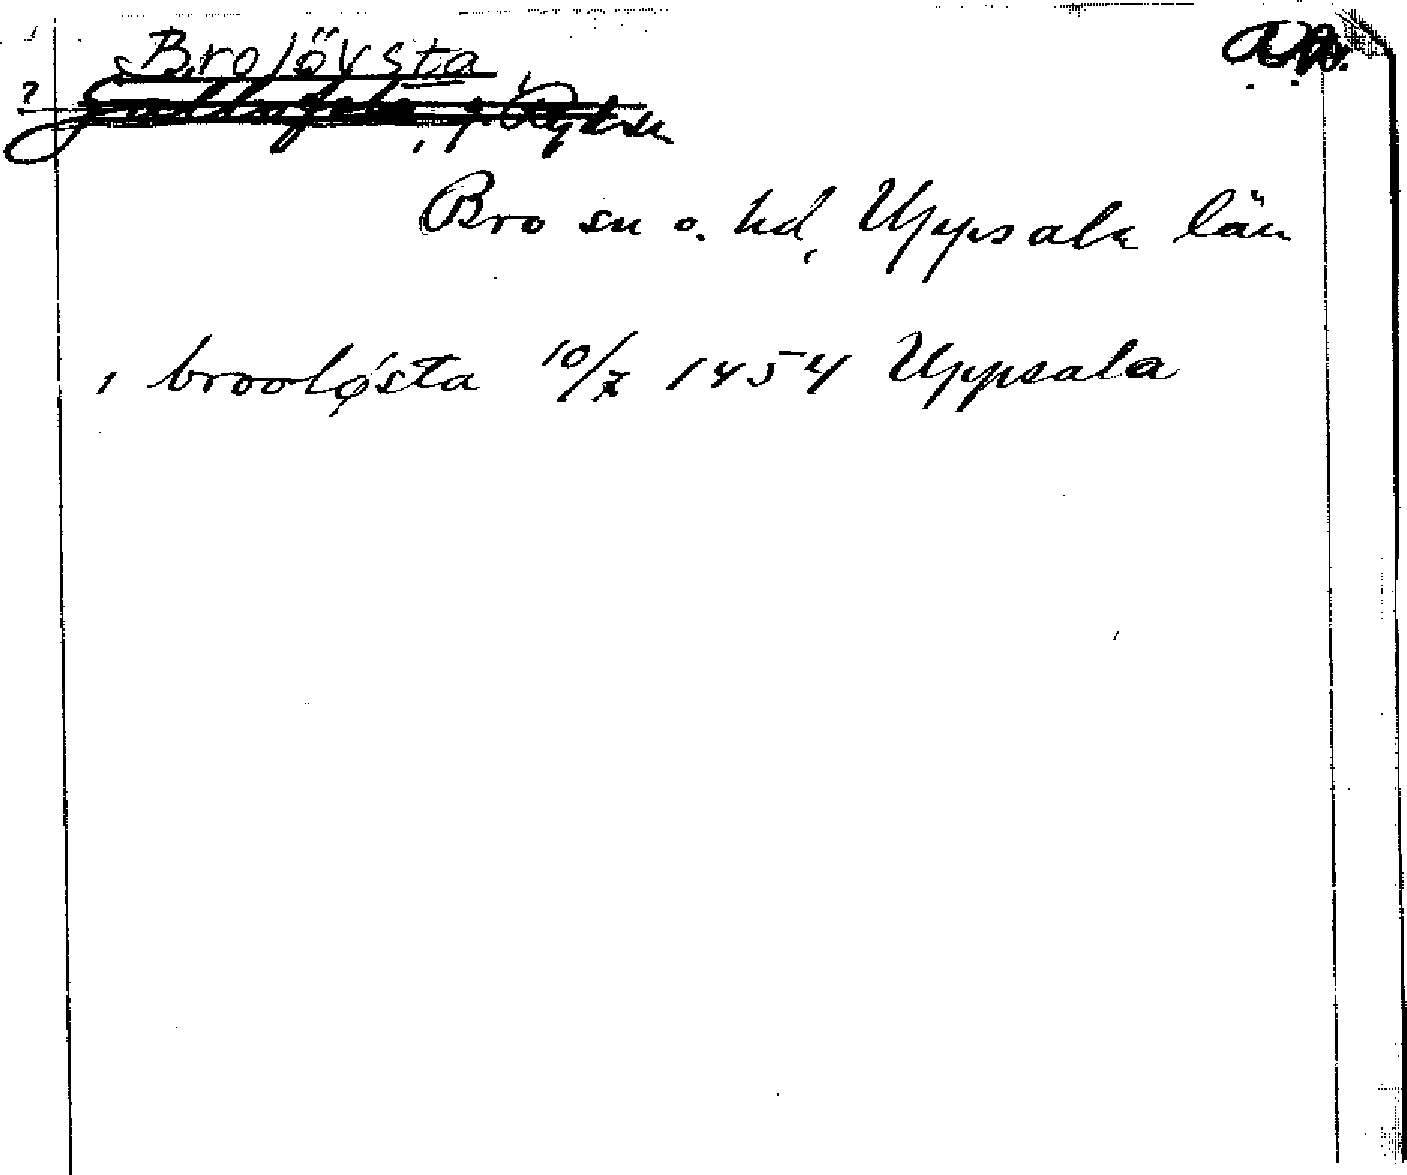 Brolövsta
?
Bro sn o. hd, Uppsala län
i brooløsta 10/7 1454 Uppsala